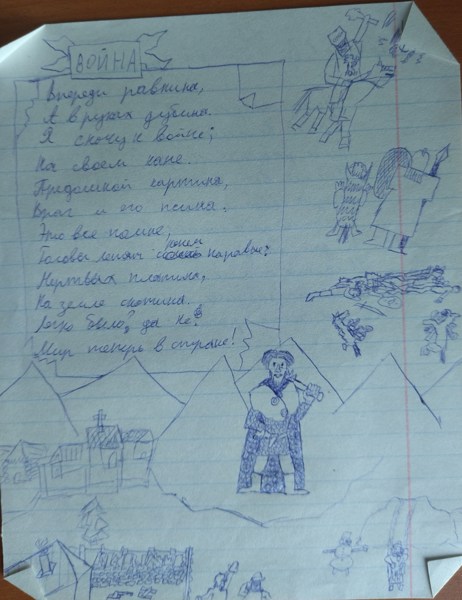 ВОЙНА
Впереди равнина,
А в руках дубина.
Я скочу к войне;
На своем коне.
Предомной картина,
Враг и его псина.
Это все помне,
Головы летят наравне
Мертвых плотина,
На земле скотина.
Легко было? да не!
Мир теперь в стране!